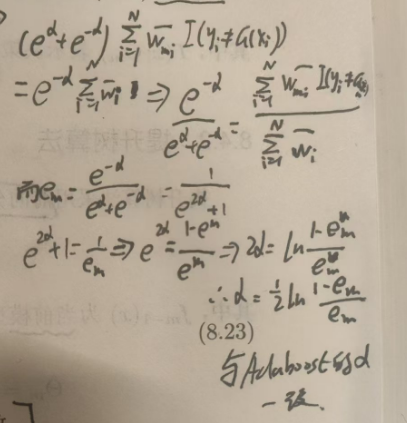 (e^α + e^-α) Σ_{i=1}^N w̄_mi I(y_i ≠ G(x_i))
= e^-α Σ_{i=1}^N w̄_i ⇒ e^-α / (e^α + e^-α) = Σ_{i=1}^N w̄_mi I(y_i ≠ G(x_i)) / Σ_{i=1}^N w̄_i
而 e_m = e^-α / (e^α + e^-α) = 1 / (e^2α + 1)
e^2α + 1 = 1/e_m ⇒ e^2α = (1-e^m)/e^m ⇒ 2α = ln (1-e_m)/e_m
∴ α = 1/2 ln (1-e_m)/e_m
(8.23)
与Adaboost的α
一致.